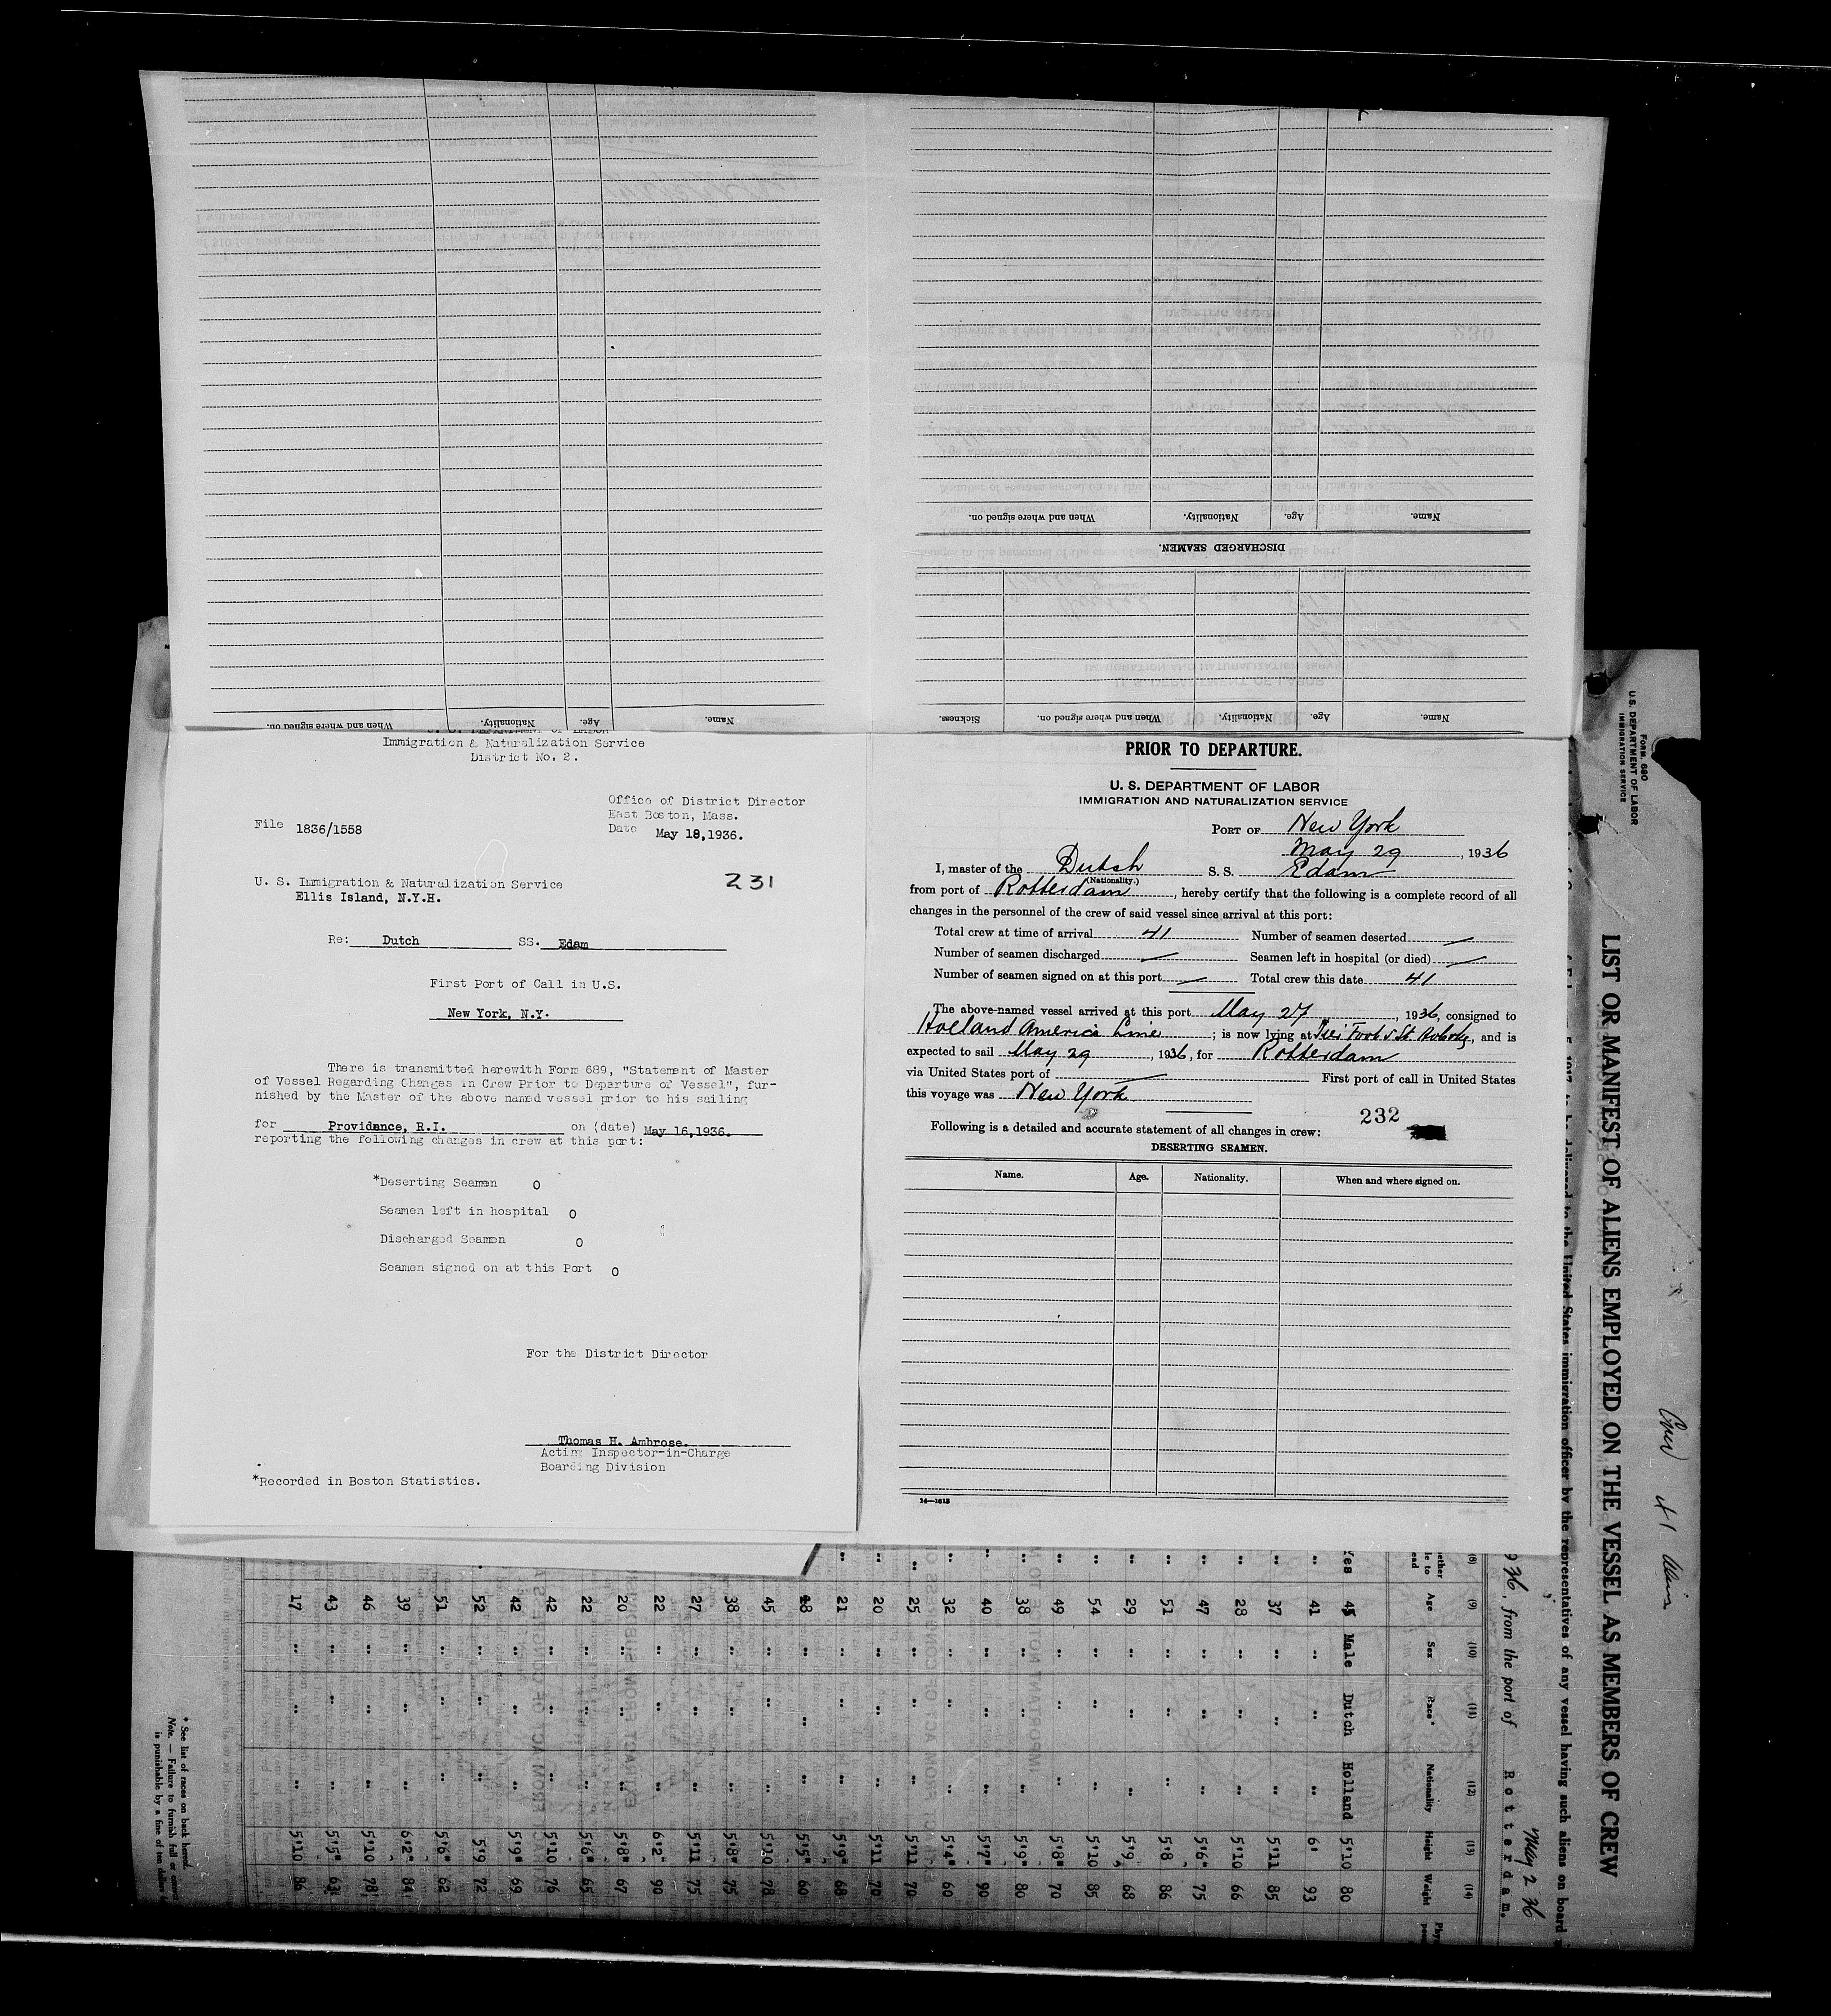 When and where signed on.
Nationality.
Age.
Name.
DISCHARGED SEAMEN.
Name.
Age.
Nationality.
When and where signed on.
Name.
Age.
Nationality.
When and where signed on.
Sickness.
U. S. DEPARTMENT OF LABOR
Immigration & Naturalization Service
District No. 2.
Office of District Director
East Boston, Mass.
File 1836/1558
Date May 18,1936.
231
U. S. Immigration & Naturalization Service
Ellis Island, N.Y.H.
Re: Dutch SS. Edam
First Port of Call in U.S.
New York, N.Y.
There is transmitted herewith Form 689, "Statement of Master
of Vessel Regarding Changes in Crew Prior to Departure of Vessel", fur-
nished by the Master of the above named vessel prior to his sailing
for Providence, R.I. on (date) May 16,1936.
reporting the following changes in crew at this port:
*Deserting Seamen 0
Seamen left in hospital 0
Discharged Seamen 0
Seamen signed on at this Port 0
For the District Director
Thomas H. Ambrose.
Acting Inspector-in-Charge
Boarding Division
*Recorded in Boston Statistics.
PRIOR TO DEPARTURE.
U. S. DEPARTMENT OF LABOR
IMMIGRATION AND NATURALIZATION SERVICE
PORT OF New York
May 29, 1936
I, master of the Dutch S. S. Edam
(Nationality.)
from port of Rotterdam, hereby certify that the following is a complete record of all
changes in the personnel of the crew of said vessel since arrival at this port:
Total crew at time of arrival 41 Number of seamen deserted —
Number of seamen discharged — Seamen left in hospital (or died) —
Number of seamen signed on at this port — Total crew this date 41
The above-named vessel arrived at this port May 27, 1936, consigned to
Holland America Line; is now lying at Foot 5 St. Hoboken, and is
expected to sail May 29, 1936, for Rotterdam
via United States port of — First port of call in United States
this voyage was New York
232
Following is a detailed and accurate statement of all changes in crew:
DESERTING SEAMEN.
Name. Age. Nationality. When and where signed on.
14—1613
Form 680
U.S. DEPARTMENT OF LABOR
IMMIGRATION SERVICE
LIST OR MANIFEST OF ALIENS EMPLOYED ON THE VESSEL AS MEMBERS OF CREW
Crew 41
to be delivered to the United States immigration officer by the representatives of any vessel having such aliens on board
936, from the port of Rotterdam.
May 2 36
(8) (9) (10) (11) (12) (13) (14)
Age Sex Race* Nationality Height Weight
Yes 45 Male Dutch Holland 5'10 80
" 41 " " " 6' 93
" 37 " " " 5'11 85
" 28 " " " 5'10 66
" 47 " " " 5'6" 75
" 51 " " " 5'8 86
" 29 " " " 5'9 68
" 54 " " " 5'10 85
" 49 " " " 5'8" 70
" 38 " " " 5'9" 80
" 40 " " " 5'7" 90
" 32 " " " 5'4" 60
" 25 " " " 5'11 70
" 20 " " " 5'11 70
" 21 " " " 5'9" 68
18 " " " 5'5" 60
45 " " " 5'10 78
38 " " " 5'8" 75
27 " " " 5'11 75
22 " " " 6'2" 90
20 " " " 5'8" 67
22 " " " 5'6" 65
42 " " " 5'10 76
42 " " " 5'9" 69
52 " " " 5'9 72
51 " " " 5'6" 62
39 " " " 6'2" 84
46 " " " 5'10 78
43 " " " 5'5" 63
17 " " " 5'10 86
* See list of races on back hereof.
Note. — Failure to furnish full or correct
is punishable by a fine of ten dollars